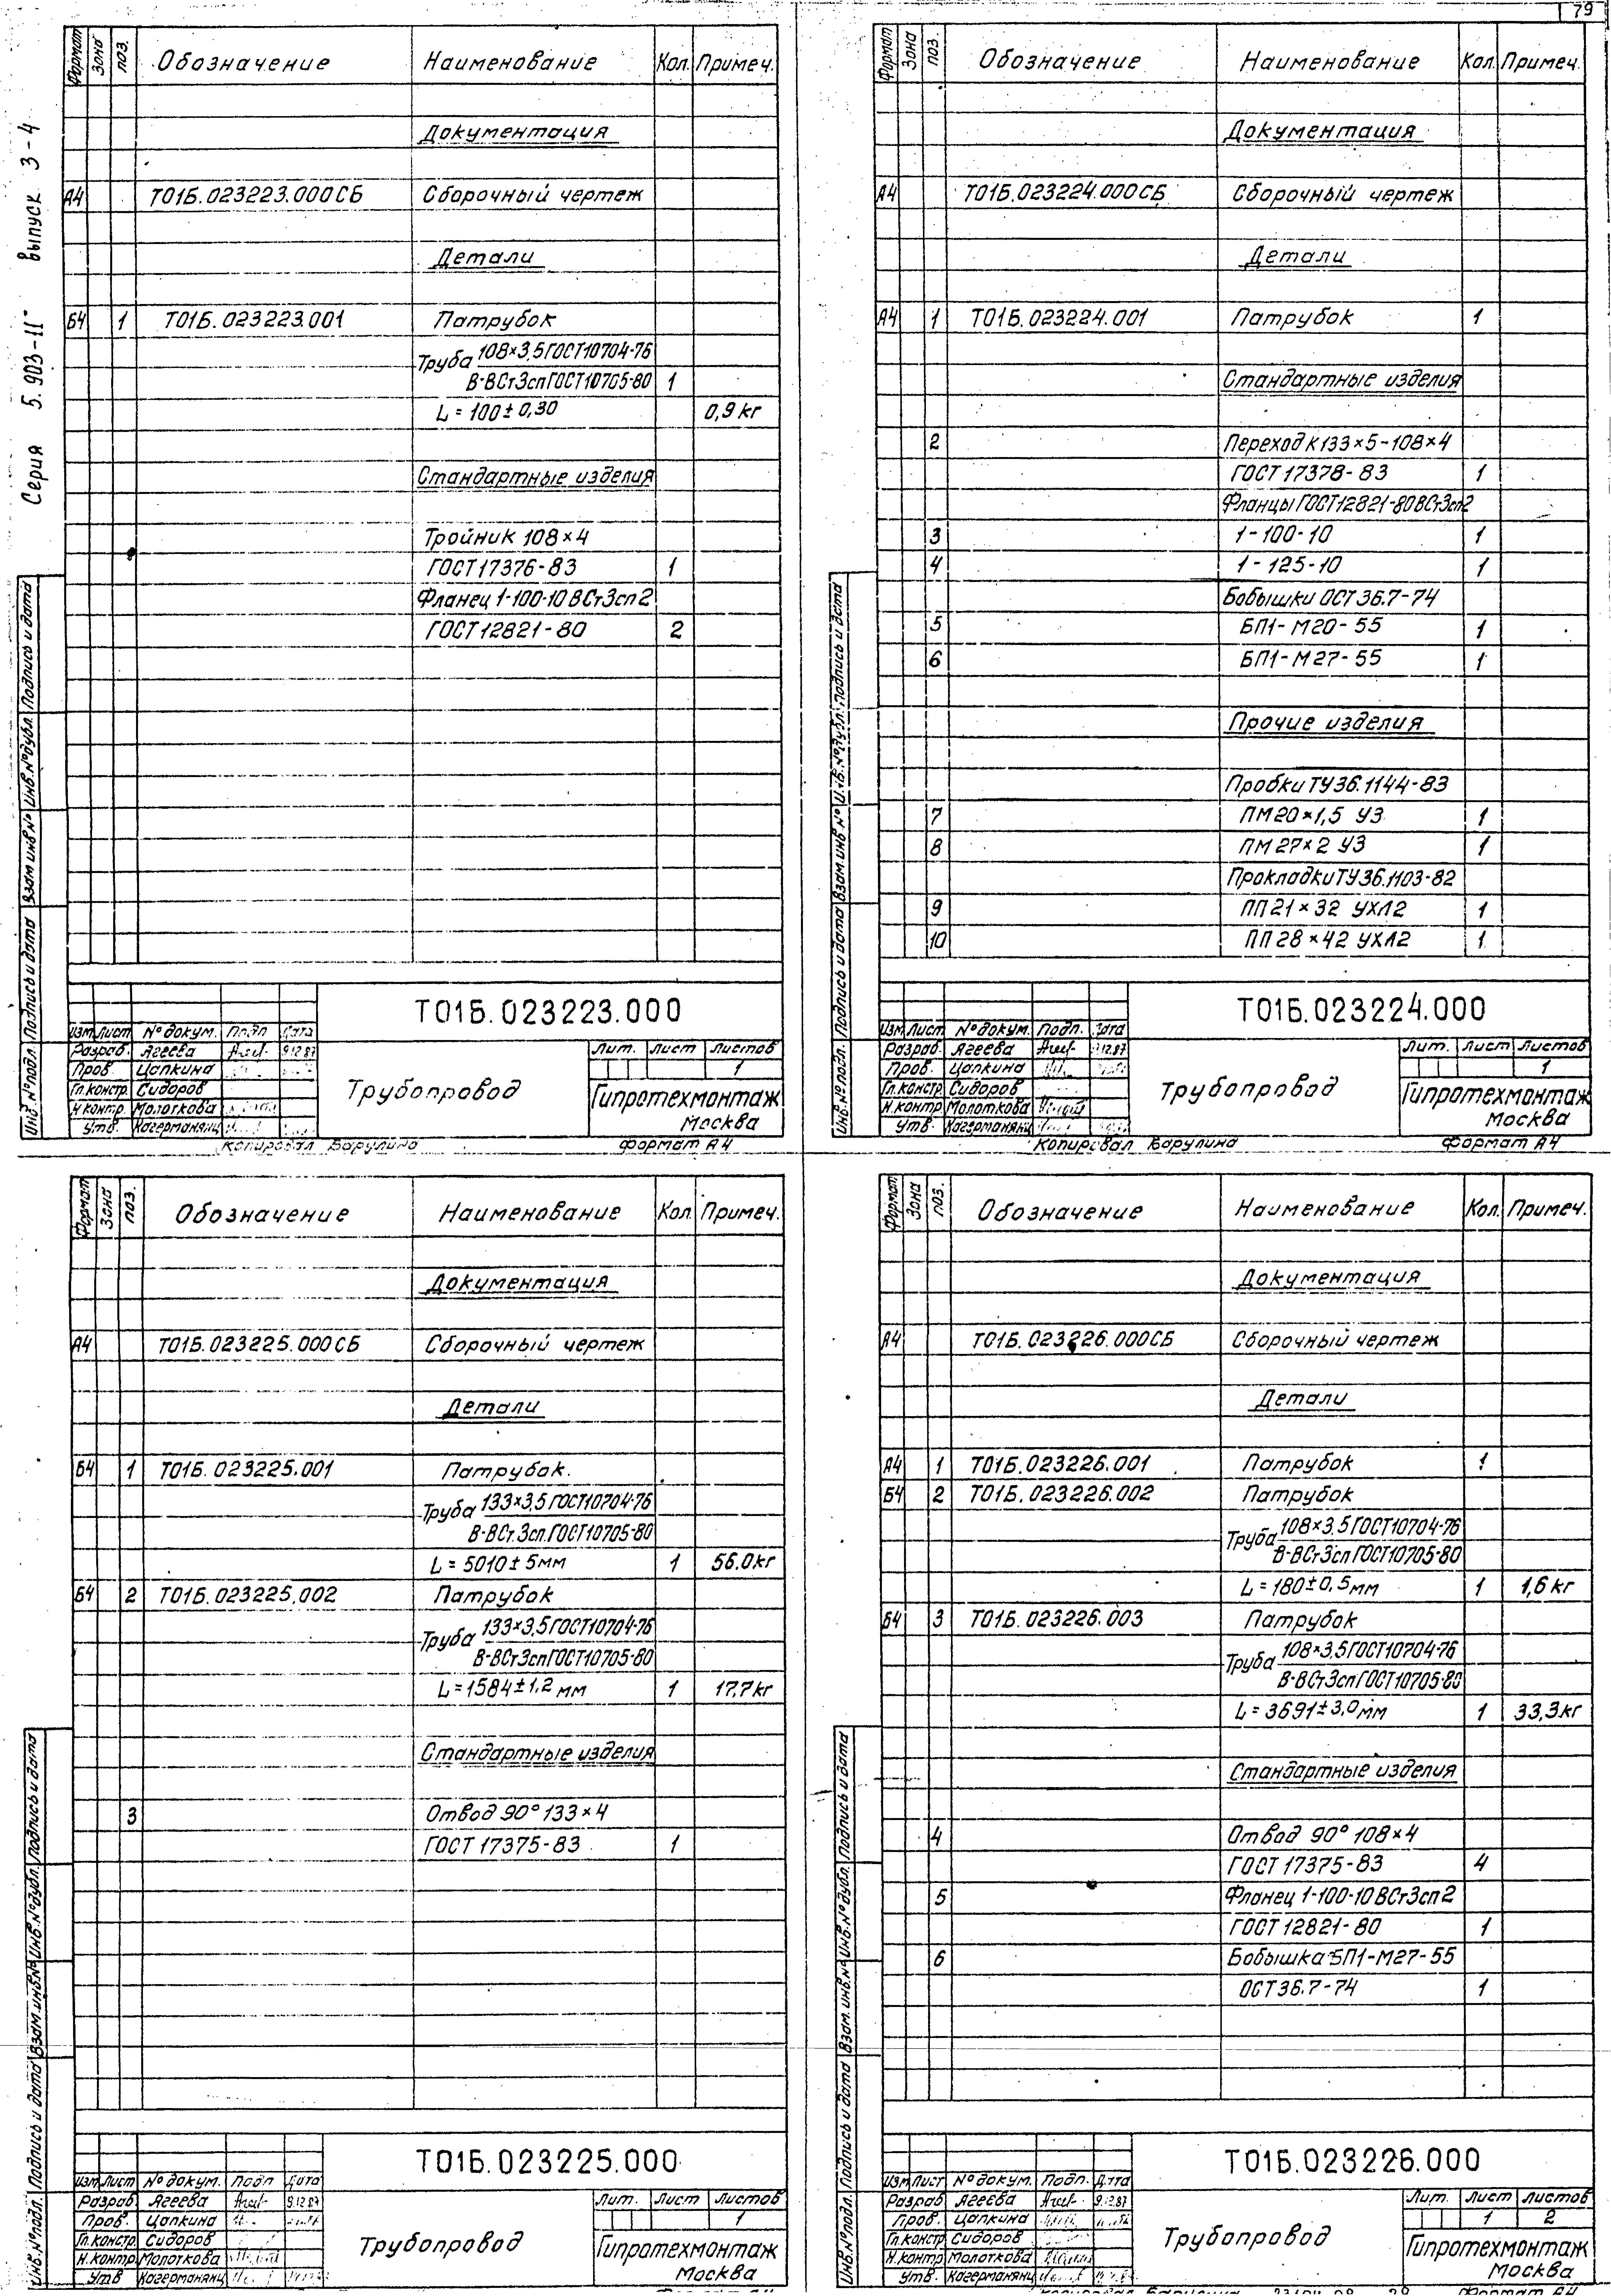 79
Серия 5.903-11 выпуск 3-4
Формат Зона поз. Обозначение Наименование Кол. Примеч.
Документация
А4 Т01Б.023223.000СБ Сборочный чертеж
Детали
Б4 1 Т01Б.023223.001 Патрубок
Труба 108×3,5 ГОСТ10704-76
В-ВСт3сп ГОСТ10705-80 1
L = 100±0,30 0,9 кг
Стандартные изделия
Тройник 108×4
ГОСТ 17376-83 1
Фланец 1-100-10 ВСт3сп2
ГОСТ 12821-80 2
Инв.№подл. Подпись и дата Взам инв № Инв.№дубл. Подпись и дата
Т01Б.023223.000
Изм Лист № докум. Подп Дата
Разраб. Агеева 9.12.87
Пров Цапкина
Гл.констр. Сидоров
Н.контр. Молоткова
Утв. Кагерманянц
Трубопровод
Лит. Лист Листов
1
Гипротехмонтаж
Москва
Копировал Варулина Формат А4
Формат Зона поз. Обозначение Наименование Кол. Примеч.
Документация
А4 Т01Б.023224.000СБ Сборочный чертеж
Детали
А4 1 Т01Б.023224.001 Патрубок 1
Стандартные изделия
2 Переход К133×5-108×4
ГОСТ 17378-83 1
Фланцы ГОСТ12821-80 ВСт3сп2
3 1-100-10 1
4 1-125-10 1
Бобышки ОСТ 36.7-74
5 БП1-М20-55 1
6 БП1-М27-55 1
Прочие изделия
Пробки ТУ36.1144-83
7 ПМ20×1,5 У3 1
8 ПМ27×2 У3 1
Прокладки ТУ36.1103-82
9 ПП21×32 УХЛ2 1
10 ПП28×42 УХЛ2 1
Инв.№подл. Подпись и дата Взам инв № Инв.№дубл. Подпись и дата
Т01Б.023224.000
Изм Лист № докум. Подп. Дата
Разраб. Агеева 9.12.87
Пров. Цапкина
Гл.констр. Сидоров
Н.контр Молоткова
Утв Кагерманянц
Трубопровод
Лит. Лист Листов
1
Гипротехмонтаж
Москва
Копировал Варулина Формат А4
Формат Зона поз. Обозначение Наименование Кол. Примеч.
Документация
А4 Т01Б.023225.000СБ Сборочный чертеж
Детали
Б4 1 Т01Б.023225.001 Патрубок.
Труба 133×3,5 ГОСТ10704-76
В-ВСт3сп ГОСТ10705-80
L = 5010±5мм 1 56.0кг
Б4 2 Т01Б.023225.002 Патрубок
Труба 133×3,5 ГОСТ10704-76
В-ВСт3сп ГОСТ10705-80
L=1584±1,2 мм 1 17,7кг
Стандартные изделия
3 Отвод 90° 133×4
ГОСТ 17375-83 1
Инв.№подл. Подпись и дата Взам.инв.№ Инв.№дубл. Подпись и дата
Т01Б.023225.000
Изм Лист № докум. Подп Дата
Разраб Агеева 9.12.87
Пров. Цапкина
Гл.констр. Сидоров
Н.контр Молоткова
Утв Кагерманянц
Трубопровод
Лит. Лист Листов
1
Гипротехмонтаж
Москва
Формат А4
Формат Зона поз. Обозначение Наименование Кол. Примеч.
Документация
А4 Т01Б.023226.000СБ Сборочный чертеж
Детали
А4 1 Т01Б.023226.001 Патрубок 1
Б4 2 Т01Б.023226.002 Патрубок
Труба 108×3,5 ГОСТ10704-76
В-ВСт3сп ГОСТ10705-80
L=180±0,5мм 1 1,6 кг
Б4 3 Т01Б.023226.003 Патрубок
Труба 108×3,5 ГОСТ10704-76
В-ВСт3сп ГОСТ10705-80
L=3691±3,0мм 1 33,3кг
Стандартные изделия
4 Отвод 90° 108×4
ГОСТ 17375-83 4
5 Фланец 1-100-10 ВСт3сп2
ГОСТ 12821-80 1
6 Бобышка БП1-М27-55
ОСТ 36.7-74 1
Инв.№подл. Подпись и дата Взам.инв.№ Инв.№дубл. Подпись и дата
Т01Б.023226.000
Изм Лист № докум. Подп. Дата
Разраб Агеева 9.12.87
Пров. Цапкина
Гл.констр Сидоров
Н.контр Молоткова
Утв. Кагерманянц
Трубопровод
Лит. Лист Листов
1 2
Гипротехмонтаж
Москва
Копировал Варулина Формат А4